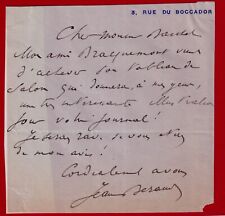 3, RUE DU BOCCADOR
Cher monsieur
Mon ami Bracquemont vient
d'achever son tableau de
Salon qui donnera, à mes yeux,
une très intéressante illustration
pour votre journal !
Je serai ravi si vous êtes
de mon avis !
Cordialement à vous
Jean Béraud